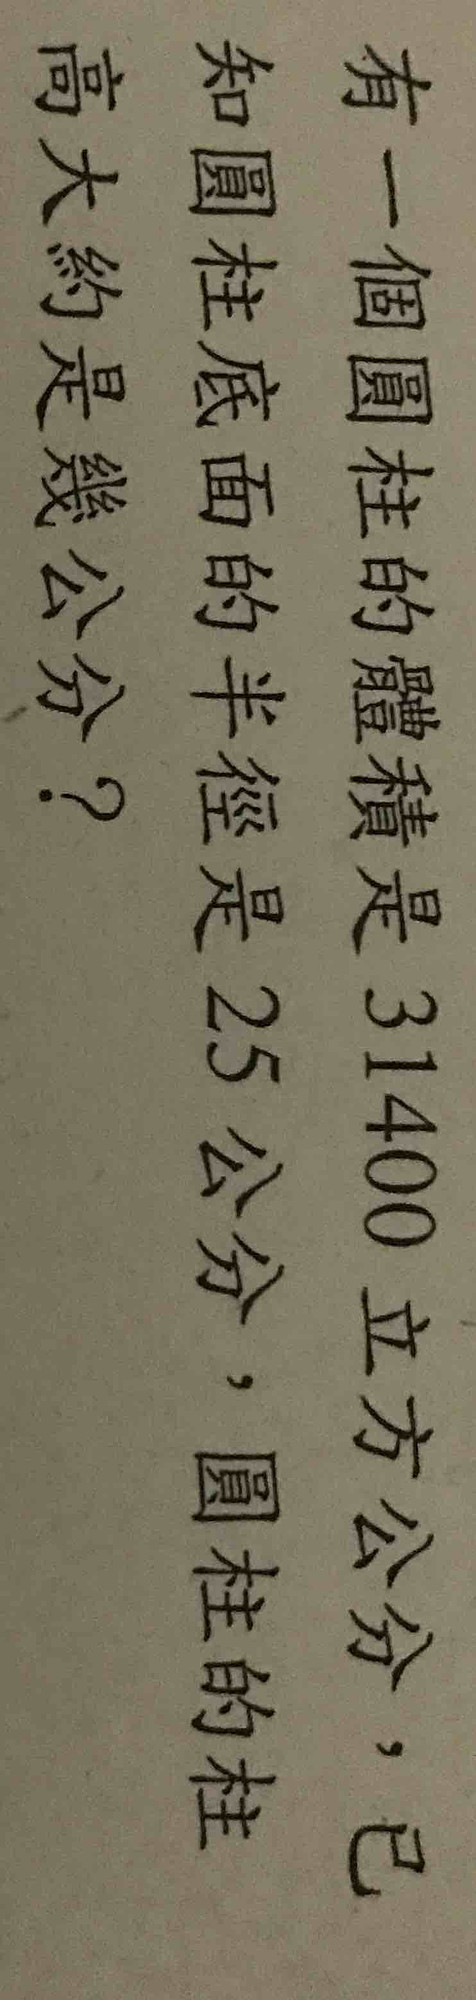 有一個圓柱的體積是31400立方公分，已
知圓柱底面的半徑是25公分，圓柱的柱
高大約是幾公分？